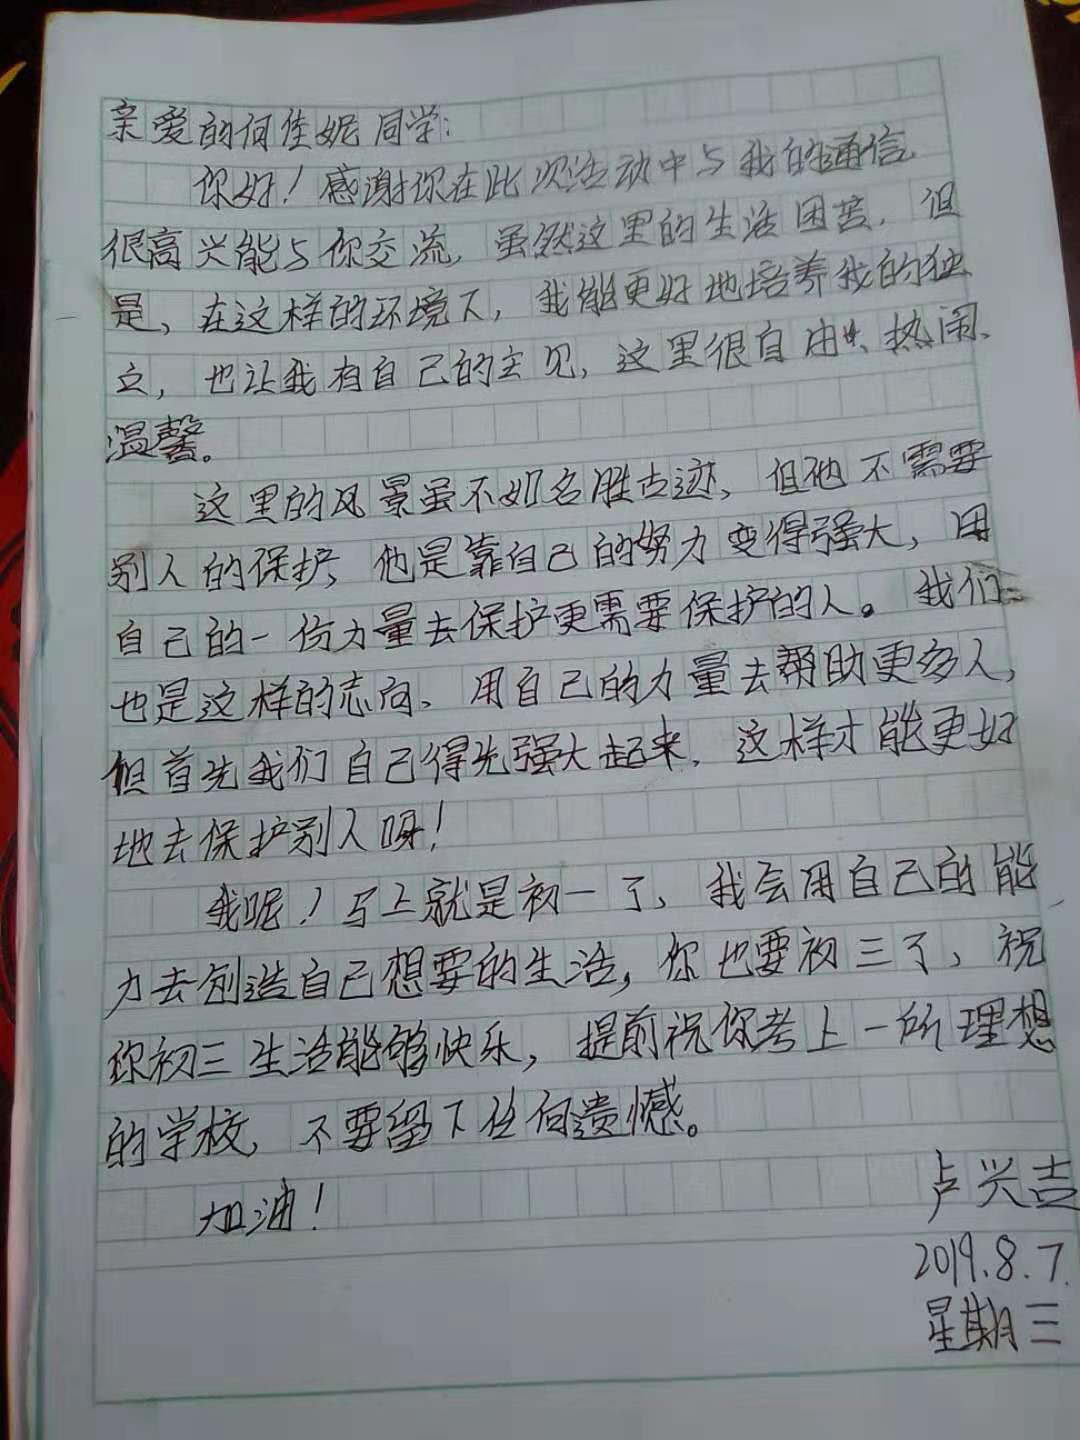 亲爱的何佳妮同学:
你好!感谢你在此次活动中与我的通信,
很高兴能与你交流,虽然这里的生活困苦,但
是,在这样的环境下,我能更好地培养我的独
立,也让我有自己的主见,这里很自由、热闹、
温馨。
这里的风景虽不如名胜古迹,但他不需要
别人的保护,他是靠自己的努力变得强大,用
自己的一份力量去保护更需要保护的人。我们
也是这样的志向,用自己的力量去帮助更多人,
但首先我们自己得先强大起来,这样才能更好
地去保护别人呀!
我呢!马上就是初一了,我会用自己的能
力去创造自己想要的生活,你也要初三了,祝
你初三生活能够快乐,提前祝你考上一所理想
的学校,不要留下任何遗憾。
加油!
卢兴吉
2019.8.7.
星期三